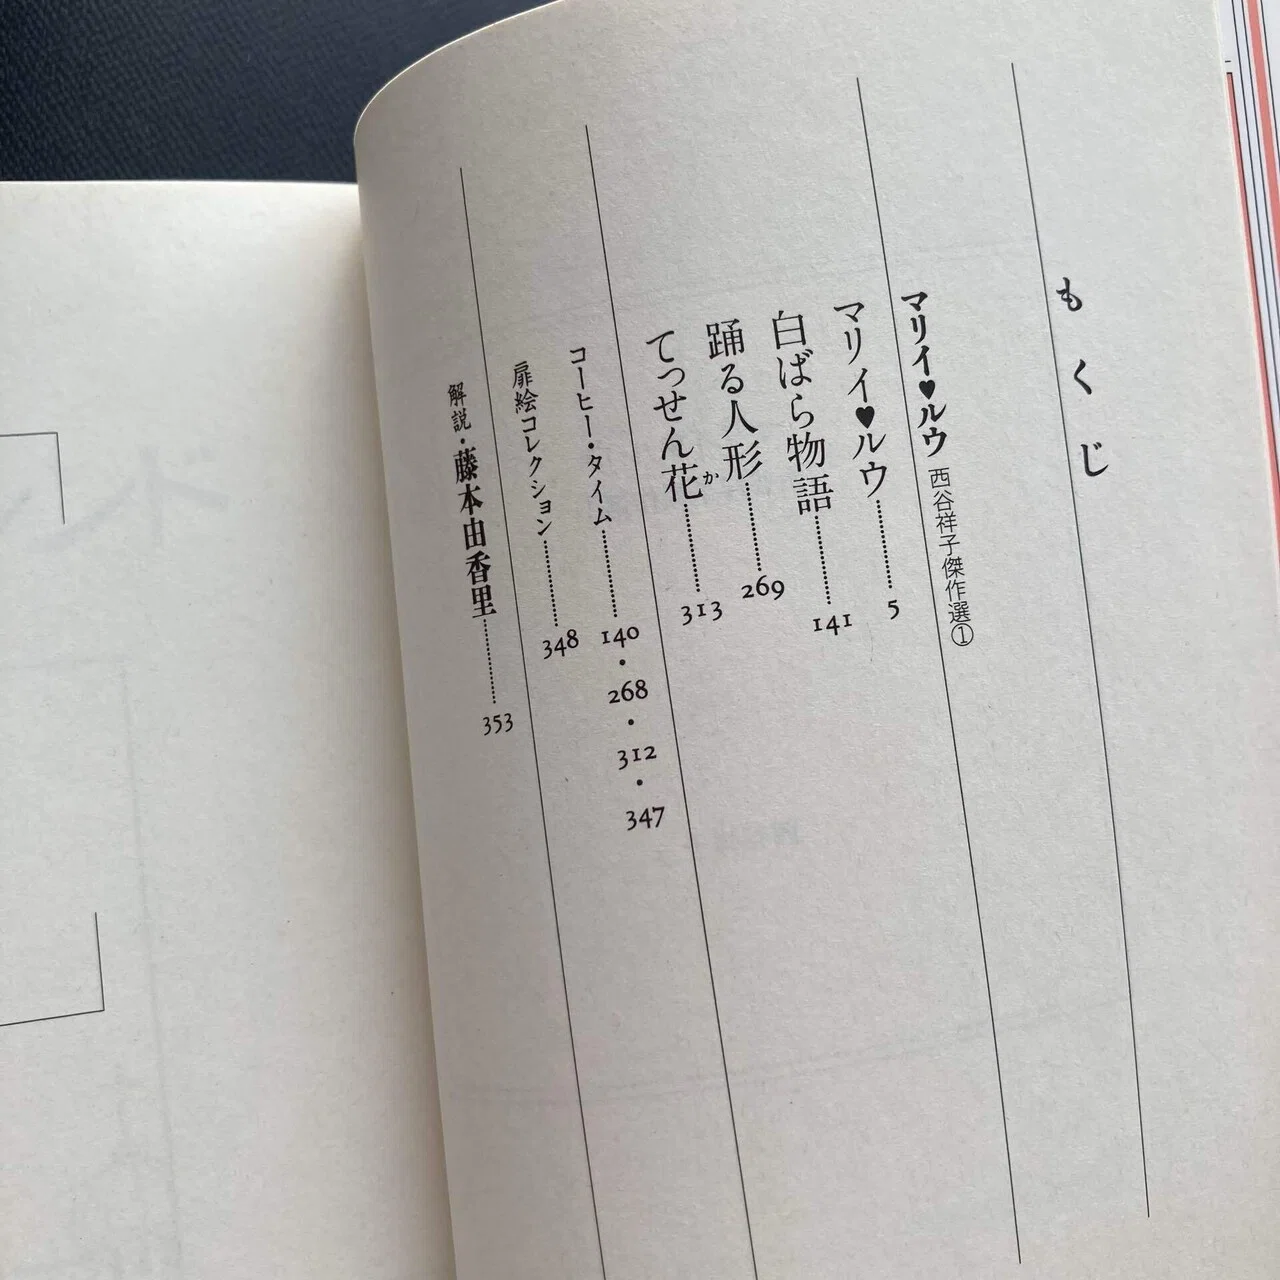 もくじ
マリイ♥ルウ 西谷祥子傑作選①
マリイ♥ルウ……5
白ばら物語……141
踊る人形……269
てっせん花か……313
コーヒー・タイム……140・268・312・347
扉絵コレクション……348
解説・藤本由香里……353